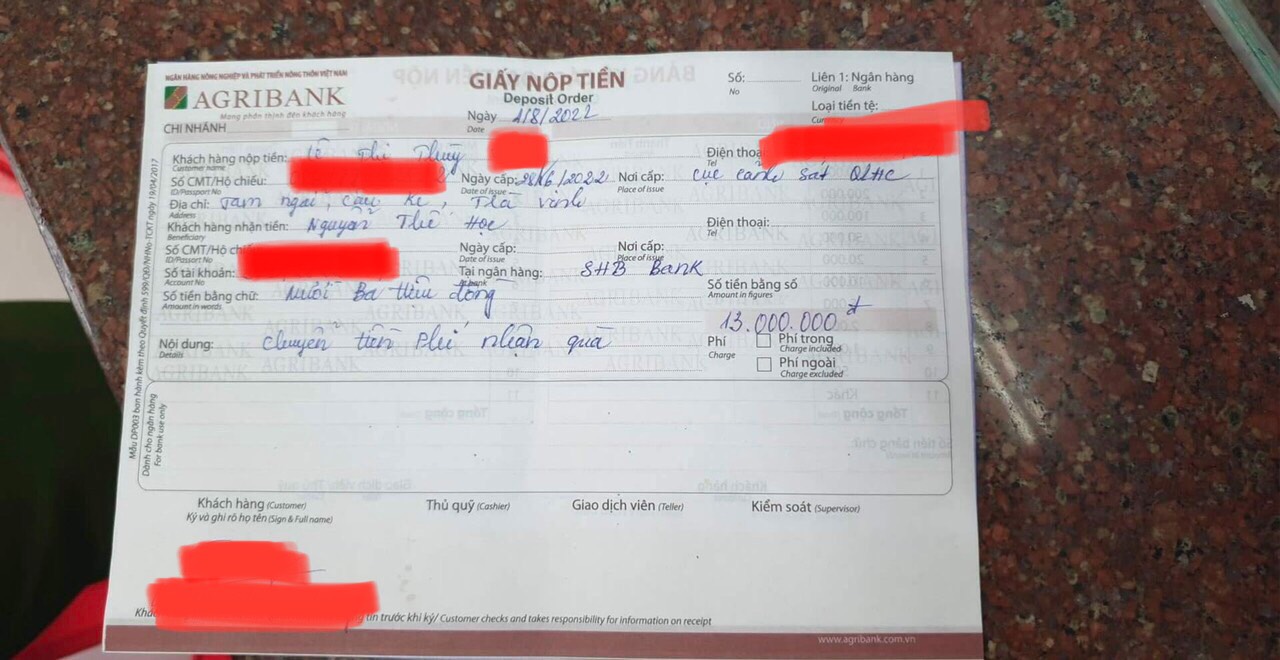 NGÂN HÀNG NÔNG NGHIỆP VÀ PHÁT TRIỂN NÔNG THÔN VIỆT NAM
AGRIBANK
Mang phồn thịnh đến khách hàng
CHI NHÁNH
GIẤY NỘP TIỀN
Deposit Order
Ngày 1/8/2022
Date
Số:
No
Liên 1: Ngân hàng
Original Bank
Loại tiền tệ:
Khách hàng nộp tiền: Thị Thủy
Customer name
Điện thoại
Tel
Số CMT/Hộ chiếu:
ID/Passport No
Ngày cấp: 28/6/2022
Date of issue
Nơi cấp: cục cảnh sát QLHC
Place of issue
Địa chỉ: Tam ngãi, cầu kè, Trà vinh
Address
Khách hàng nhận tiền: Nguyễn Thế Học
Beneficiary
Điện thoại:
Tel
Số CMT/Hộ
ID/Passport No
Ngày cấp:
Date of issue
Nơi cấp:
Place of issue
Số tài khoản:
Account No
Tại ngân hàng: SHB Bank
At bank
Số tiền bằng chữ: Mười Ba triệu đồng
Amount in words
Số tiền bằng số
Amount in figures
13.000.000 đ
Nội dung: chuyển tiền phí nhận quà
Details
Phí
Charge
Phí trong
Charge included
Phí ngoài
Charge excluded
Dành cho ngân hàng
For bank use only
Mẫu DP003 ban hành kèm theo Quyết định 599/QĐ/NHNo-TCKT ngày 19/04/2017
Khách hàng (Customer)
Ký và ghi rõ họ tên (Sign & Full name)
Thủ quỹ (Cashier)
Giao dịch viên (Teller)
Kiểm soát (Supervisor)
tin trước khi ký/ Customer checks and takes responsibility for information on receipt
www.agribank.com.vn